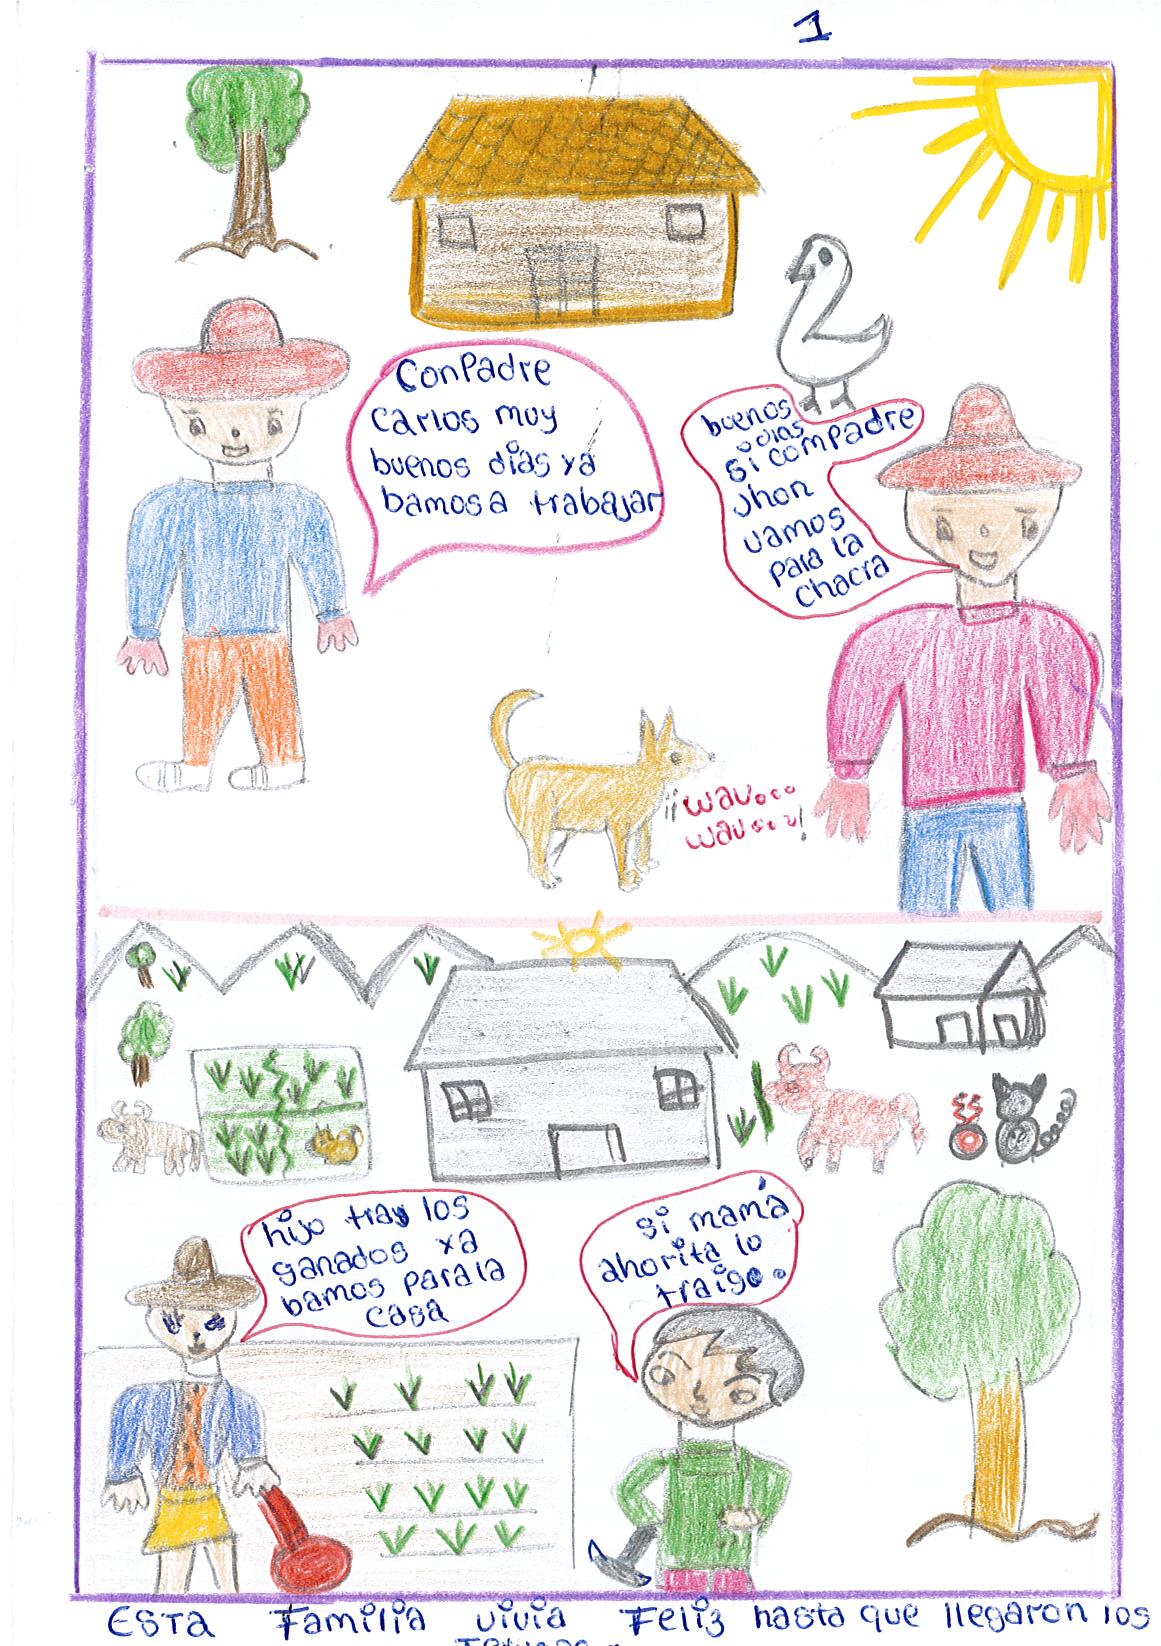 1
ConPadre
carlos muy
buenos días ya
bamos a trabajar
buenos
dias
si compadre
Jhon
vamos
para la
chacra
¡¡wauooo
wauoou!
hijo tray los
ganados ya
bamos para la
casa
si mamá
ahorita lo
traigo.
ESTA Familia vivia Feliz hasta que llegaron los